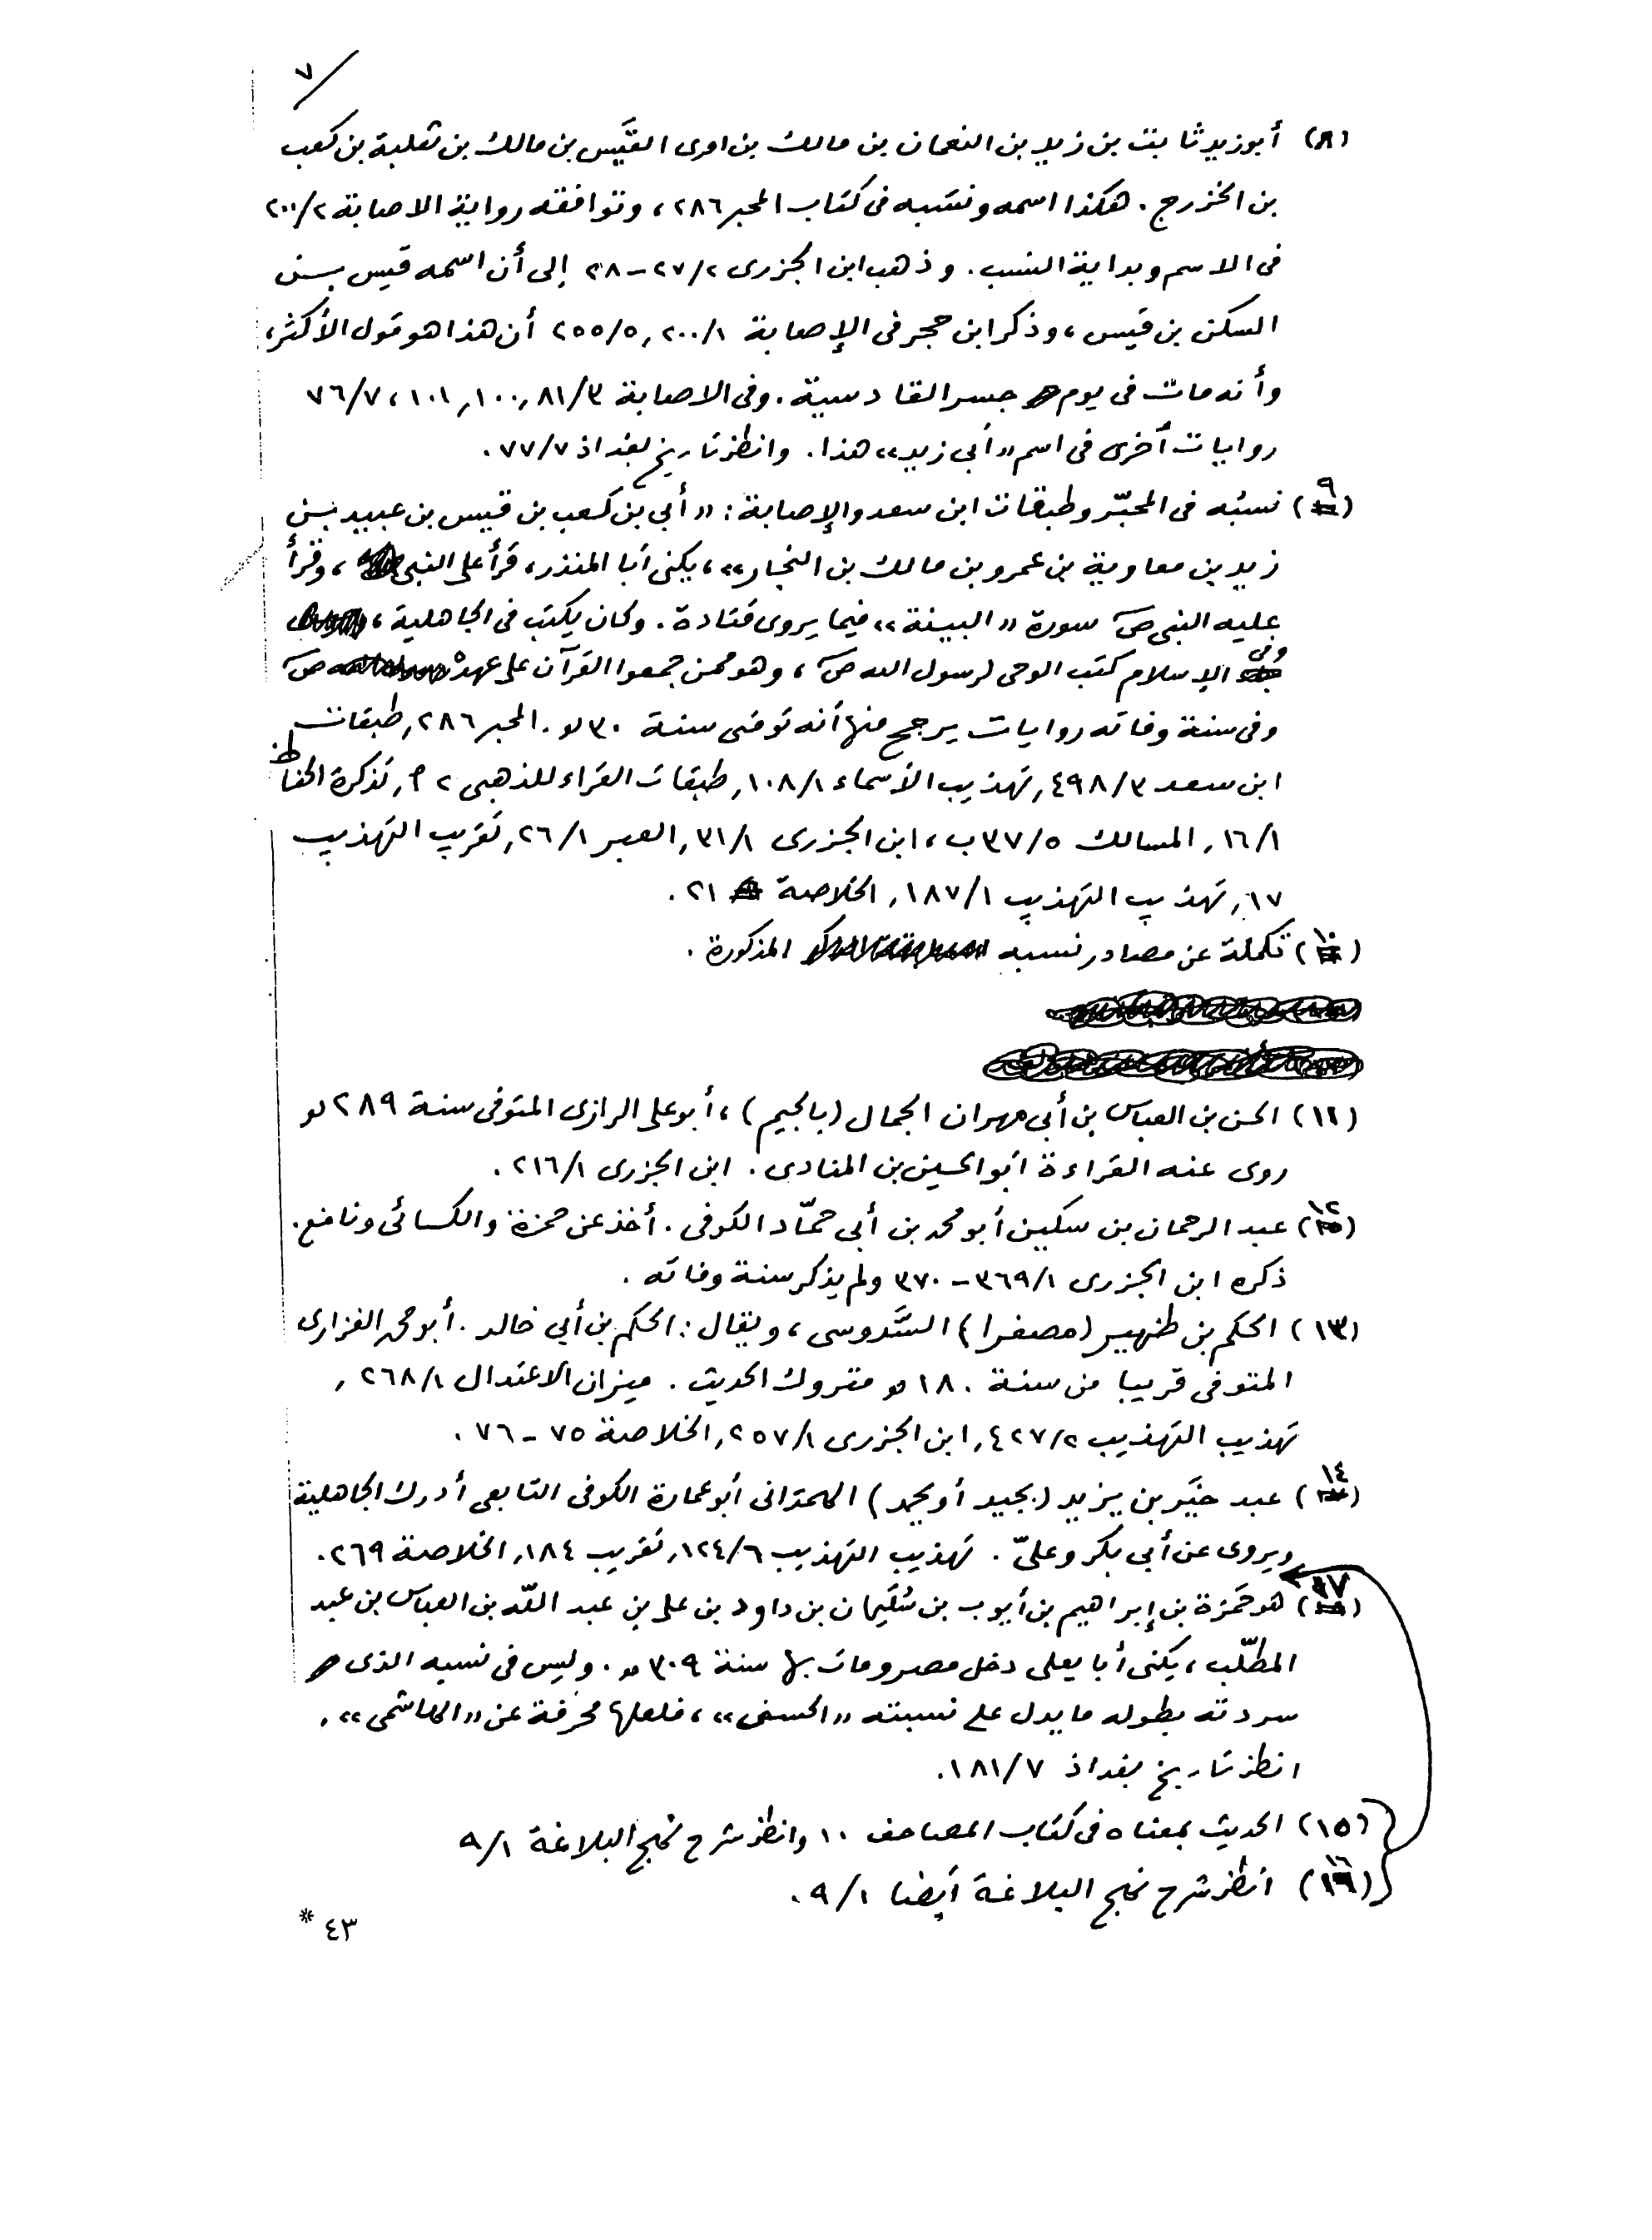 ٧/
(٨) أبو زيد ثابت بن زيد بن النعمان بن مالك بن امرى القَيس بن مالك بن ثعلبة بن كعب
بن الخزرج . هكذا اسمه ونسَبه فى كتاب المحبر ٢٨٦، وتوافقه رواية الاصابة ٢٠٠/٢
فى الاسم وبداية النسب . وذهب ابن الجزرى ٢٧/٢ – ٢٨ إلى أن اسمه قيس بن
السكن بن قيس، وذكر ابن حجر فى الإصابة ٢٠٠/١, ٢٥٥/٥ أن هذا هو قول الأكثر،
وأنه مات فى يوم جسر القادسية . وفى الاصابة ٨١/٣, ١٠٠, ١٠١، ٧٦/٧
روايات أخرى فى اسم «أبى زيد» هذا . وانظر تاريخ بغداذ ٧٧/٧ .
(٩) نسبُه فى المحبّر وطبقات ابن سعد والإصابة: «أبي بن كعب بن قيس بن عبيد بن
زيد بن معاوية بن عمرو بن مالك بن النجار»، يكنى أبا المنذر، قرأ على النبى، وقرأ
عليه النبى صٓ سورة «البينة» فيما يروى قتادة . وكان يكتب فى الجاهلية،
وفى الإسلام كتب الوحى لرسول الله صٓ، وهو ممن جمعوا القرآن على عهده صٓ
وفى سنة وفاته روايات يرجح منها أنه توفى سنة ٣٠ هـ . المحبر ٢٨٦, طبقات
ابن سعد ٤٩٨/٣, تهذيب الأسماء ١٠٨/١, طبقات القراء للذهبى ٢ م, تذكرة الحفاظ
١٦/١, المسالك ٣٧/٥ ب، ابن الجزرى ٣١/١, العبر ٢٦/١, تقريب التهذيب
١٧, تهذيب التهذيب ١٨٧/١, الخلاصة ٢١ .
(١٠) تكملة عن مصادر نسبه المذكورة .
(١١) الحسن بن العباس بن أبى مهران الجمال (بالجيم)، أبو على الرازى المتوفى سنة ٢٨٩ هـ
روى عنه القراءة أبو الحسين بن المنادى . ابن الجزرى ٢١٦/١ .
(١٢) عبد الرحمان بن سكين أبو محمد بن أبى حمّاد الكوفى . أخذ عن حمزة والكسائى ونافع .
ذكره ابن الجزرى ٣٦٩/١ – ٣٧٠ ولم يذكر سنة وفاته .
(١٣) الحكم بن ظهير (مصغرا) السَّدوسى، ويقال: الحكم بن أبي خالد . أبو محمد الفزارى
المتوفى قريبا من سنة ١٨٠ هـ متروك الحديث . ميزان الاعتدال ٢٦٨/١,
تهذيب التهذيب ٤٢٧/٢, ابن الجزرى ٢٥٧/١, الخلاصة ٧٥ – ٧٦ .
(١٤) عبد خَيَر بن يزيد (بجيد أو يحمد) الهمدانى أبو عمارة الكوفى التابعى أدرك الجاهلية
ويروى عن أبي بكر وعلىّ . تهذيب التهذيب ١٢٤/٦, تقريب ١٨٤, الخلاصة ٢٦٩ .
(١٧) هو حَمَزة بن إبراهيم بن أيوب بن سُلَيمان بن داود بن على بن عبد اللّه بن العباس بن عبد
المطّلب، يكنى أبا يعلى دخل مصر ومات بها سنة ٣٠٩ هـ . وليس فى نسبه الذى
سردته بطوله ما يدل على نسبته «الحسنى»، فلعلها محرفة عن «الهاشمى» .
انظر تاريخ بغداذ ١٨١/٧ .
(١٥) الحديث بمعناه فى كتاب المصاحف ١٠ وانظر شرح نهج البلاغة ٩/١
(١٦) انظر شرح نهج البلاغة أيضا ٩/١ .
٤٣ *